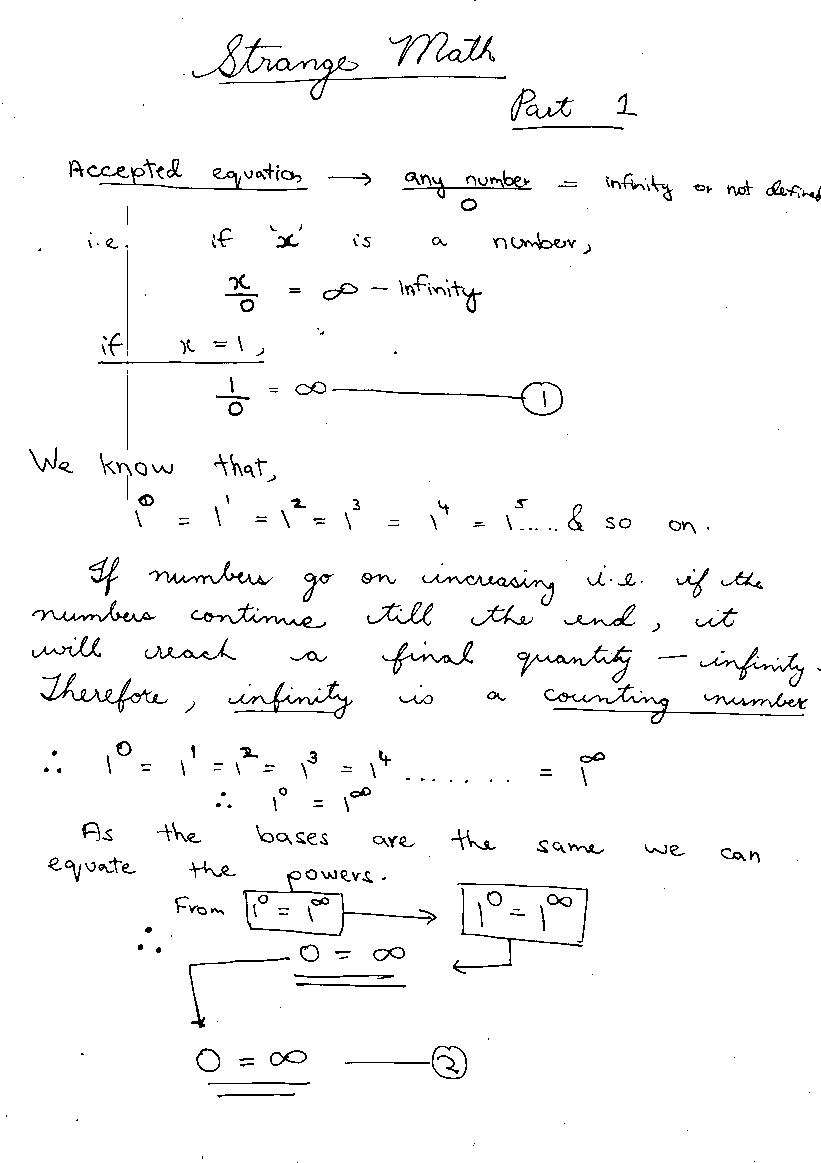 Strange Math
Part 1
Accepted equation → any number/0 = infinity or not defined
i.e. if 'x' is a number,
x/0 = ∞ – Infinity
if x = 1,
1/0 = ∞ ——— ①
We know that,
1⁰ = 1¹ = 1² = 1³ = 1⁴ = 1⁵..... & so on.
If numbers go on increasing i.e. if the
numbers continue till the end, it
will reach a final quantity – infinity.
Therefore, infinity is a counting number
∴ 1⁰ = 1¹ = 1² = 1³ = 1⁴ ........ = 1^∞
∴ 1⁰ = 1^∞
As the bases are the same we can
equate the powers.
From 1⁰ = 1^∞ → 1⁰ = 1^∞
∴ 0 = ∞
0 = ∞ ——— ②